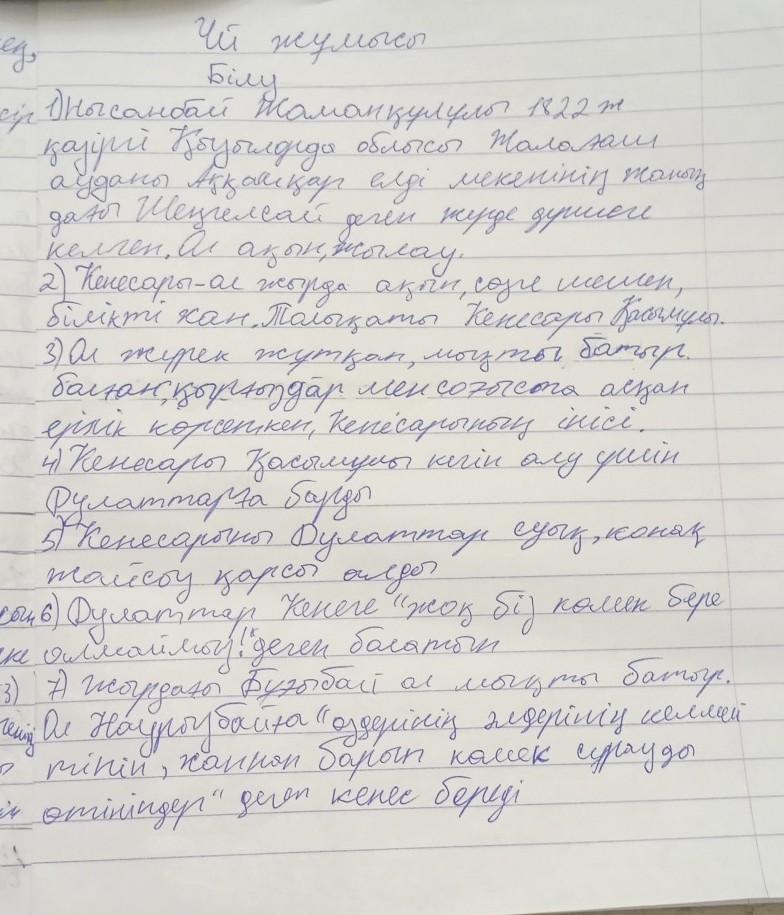 Үй жұмысы
Білу
1) Нысанбай Жаманқұлұлы 1822 ж
қазіргі Қызылорда облысы Жалағаш
ауданы Аққошқар елді мекенінің жаның
дағы Шеңгелсай деген жерде дүниеге
келген. Ол ақын, жылау.
2) Кенесары-ол жырда ақын, сөзге шешен,
білікті хан. Толықаты Кенесары Қасымұлы.
3) Ол жүрек жұтқан, мықты батыр.
болған, қырғыздар мен соғыста асқан
ерлік көрсеткен, Кенесарының інісі.
4) Кенесары Қасымұлы кегін алу үшін
Дулаттарға барды
5) Кенесарыны Дулаттар суық, конақ
жайсыз қарсы алды
6) Дулаттар Кенеге "жоқ біз көмек бере
алмаймыз!" деген болатын
7) Жырдағы Бұғыбай ол мықты батыр.
Ол Наурызбайға "өздерінің әлдерінің келмей
тінін, ханнан барып көмек сұрауды
өтініңдер" деген кеңес береді
3)